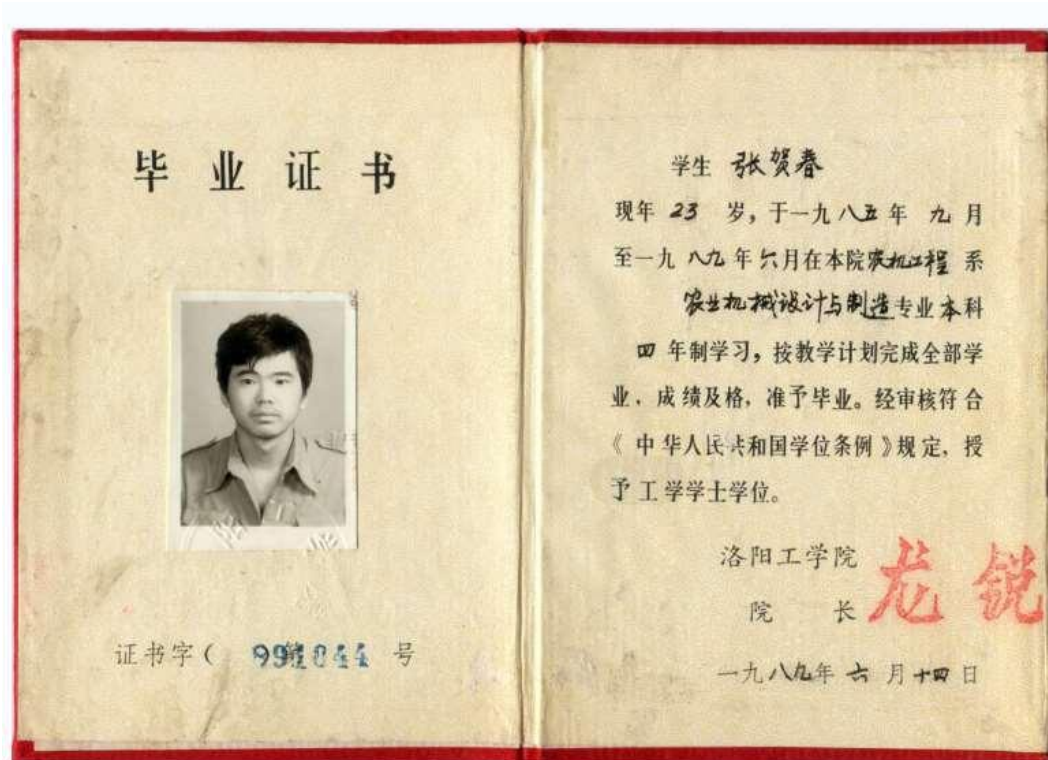 毕业证书
证书字（ 第991044 号
学生 张贺春
现年 23 岁，于一九八五年 九月
至一九八九年六月在本院农机工程 系
农业机械设计与制造专业本科
四 年制学习，按教学计划完成全部学
业、成绩及格，准予毕业。经审核符合
《中华人民共和国学位条例》规定，授
予工学学士学位。
洛阳工学院
院 长 龙锐
一九八九年 六 月十四日